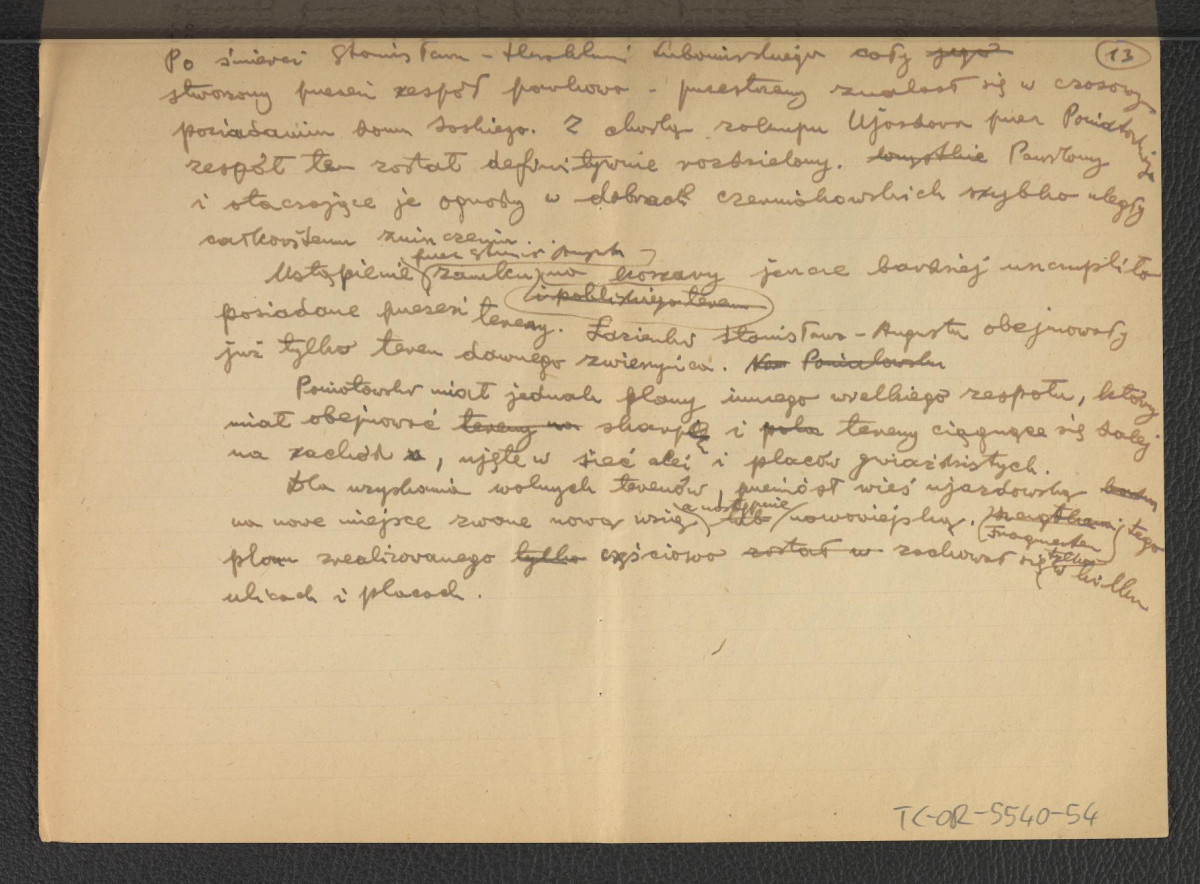 13
Po śmierci Stanisława - Herakliusza Lubomirskiego cały jego
stworzony przezeń zespół parkowo - przestrzenny znalazł się w czasowym
posiadaniu domu saskiego. Z chwilą zakupu Ujazdowa przez Poniatowskiego
zespół ten został definitywnie rozdzielony. wszystkie Pawilony
i otaczające je ogrody w dobrach czerniakowskich szybko uległy
całkowitemu zniszczeniu.
przez Stanisł. Augusta
Ustąpienie zamku na koszary jeszcze bardziej uszczupliło
i pobliskiego terenu
posiadane przezeń tereny. Łazienki Stanisława - Augusta obejmowały
już tylko teren dawnego zwierzyńca. Poniatowski
Poniatowski miał jednak plany innego wielkiego zespołu, który
miał obejmować tereny na skarpę i pola tereny ciągnące się dalej
na zachód, ujęte w sieć alei i placów gwiaździstych.
Dla uzyskania wolnych terenów, przeniósł wieś ujazdowską
a następnie
na nowe miejsce zwane nową wsią lub nowowiejską. tego
Fragmenten
planu zrealizowanego tylko częściowo został w zachował się tylko w kilku
ulicach i placach.
TK-OR-5540-54